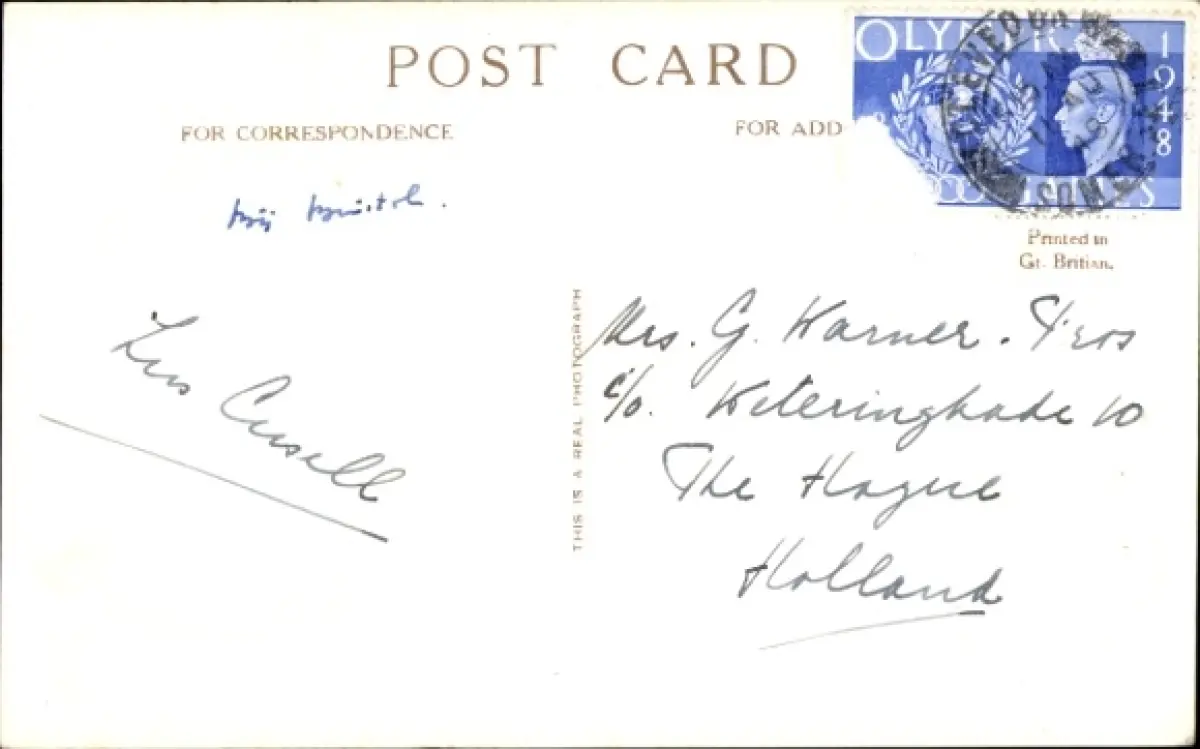 POST CARD
OLYMPIC
1948
GAMES
FOR CORRESPONDENCE
FOR ADD
Printed in
Gt. Britian.
bij Bristol.
THIS IS A REAL PHOTOGRAPH
Mrs. G. Warner. Pros
c/o. Weteringkade 10
The Hague
Holland